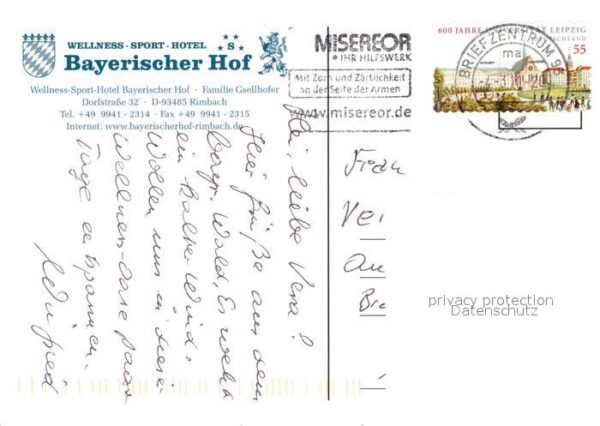 WELLNESS - SPORT - HOTEL ★S
Bayerischer Hof
Wellness-Sport-Hotel Bayerischer Hof · Familie Gsellhofer
Dorfstraße 32 · D-93485 Rimbach
Tel. +49 9941 - 2314 · Fax +49 9941 - 2315
Internet: www.bayerischerhof-rimbach.de
MISEREOR
• IHR HILFSWERK
Mit Zorn und Zärtlichkeit
an der Seite der Armen
www.misereor.de
600 JAHRE UNIVERSITÄT LEIPZIG
DEUTSCHLAND
55
BRIEFZENTRUM 9
ma
Hei, liebe Vera!
Hier Grüße aus dem
bayr. Wald. Es weht
ein kalter Wind.
Wollen uns in dieser
Wellness-Oase paar
Tage entspannen.
Winfried
Frau
Ver
An
Bre
privacy protection
Datenschutz